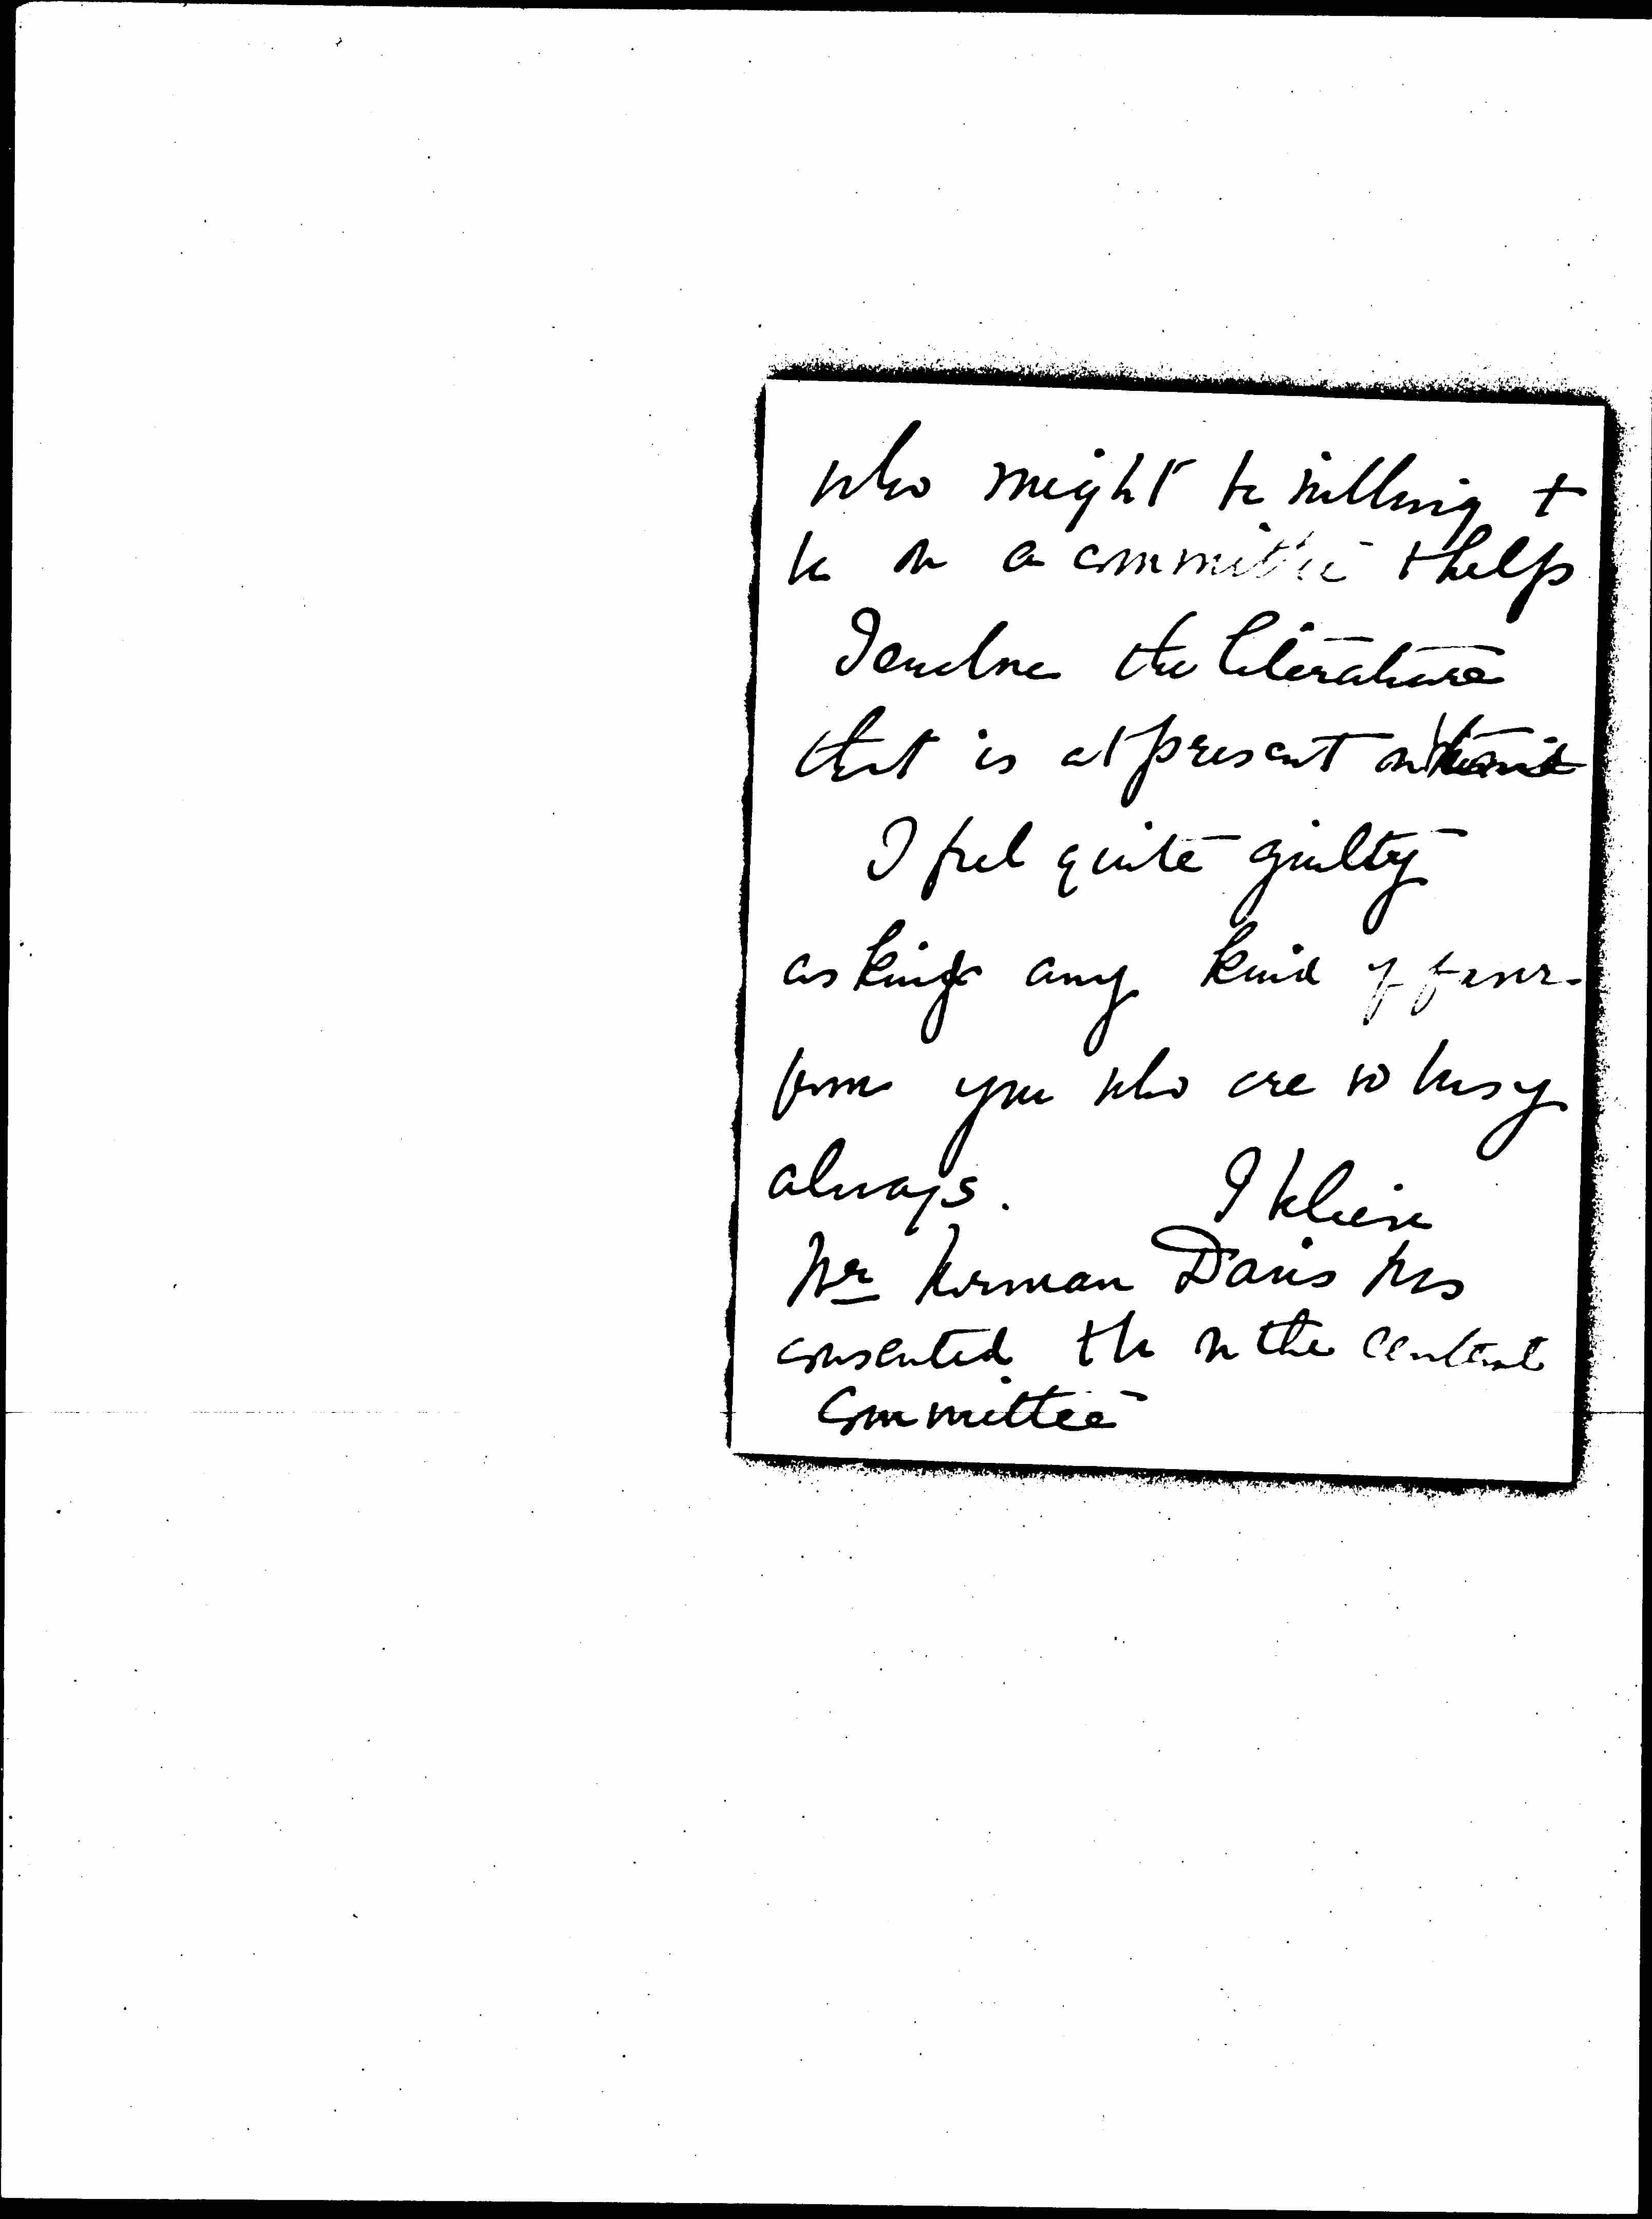 who might be willing to
be on a committee & help
I enclose the literature
that is at present
I feel quite guilty
asking any kind of favor
from you who are so busy
always. I believe
Mr Norman Davis has
consented to be on the central
Committee